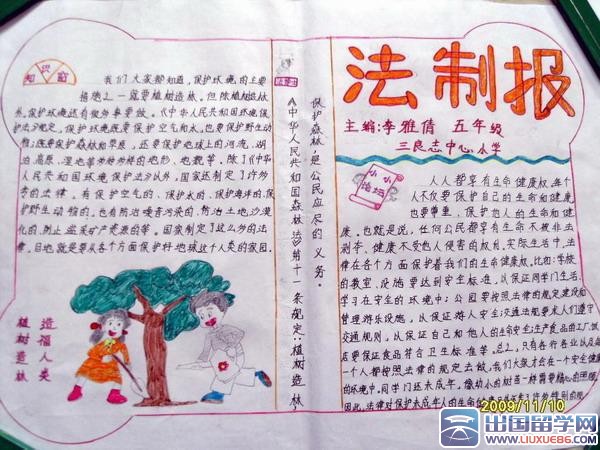 法制报
主编:李雅倩 五年级
三良志中心小学
知识窗
我们大家都知道,保护环境的主要
措施之一就要植树造林。但除植树造林
外,保护环境还有很外事要做。《中华人民共和国环境保
护法》规定,保护环境既要保护空气和水,也要保护野生动
物;既要保护森林和草原,还要保护地球上的河流、湖
泊、高原、湿地等多种多样的地形、地貌等,除了《中华人
民共和国环境保护法》以外,国家还制定了许多
专的法律。有保护空气的、保护水的、保护海洋的、保
护野生动物的。也有防治噪音污染的、防治土地沙漠
化的、制止盗采矿产资源的等。国家制定了这么多的法
律,目地就是要从各个方面保护好地球这个人类的家园。
植树造林
造福人类
《中华人民共和国森林法》第十一条规定:植树造林、
保护森林,是公民应尽的义务。
小小论坛
人人都享有生命健康权,每个
人不仅要保护自己的生命和健康
也要尊重、保护他人的生命和健
康。也就是说,任何公民都享有生命不被非法
剥夺、健康不受他人侵害的权利。实际生活中,法
律在各个方面保护着我们的生命健康权。比如:学校
的教室、设施要达到安全标准,以保证同学们生活、
学习在安全的环境中;公园要按照法律的规定建设和
管理游乐设施,以保证游人安全;交通法规要求人们遵守
交通规则,以保证自己和他人的生命安全;生产食品的工厂、饭
店要保证食品符合卫生标准等。总之,只有各行各业以及每
一个人都按照法律的规定去做,我们大家才会在一个安全健康
的环境中。同学们还未成年,像幼小的树苗一样需要精心的照顾
因此,法律对保护未成年人的生命
2009/11/10
出国留学网
WWW.LIUXUE86.COM